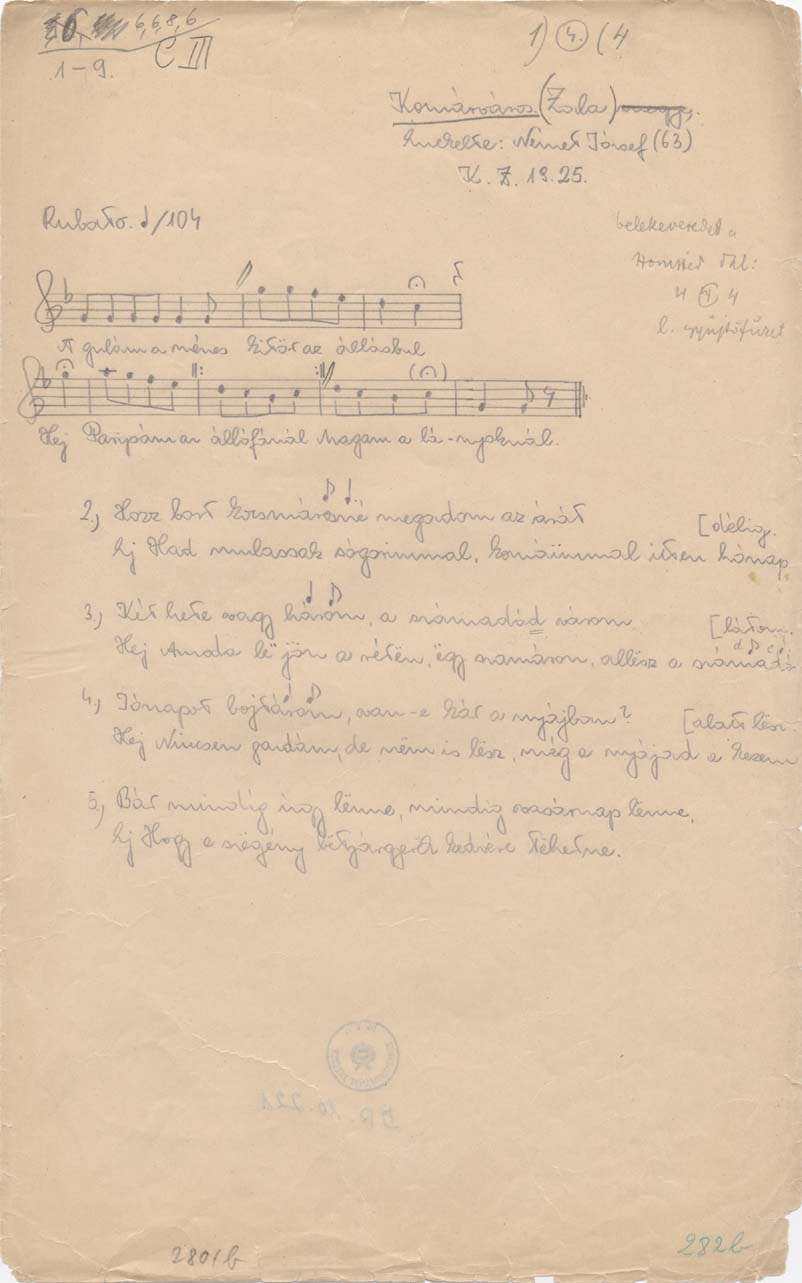 6,6,8,6
C III
1-9.
1) 4. (4
Komárváros (Zala)
Énekelte: Német József (63)
K. Z. 1925.
Rubato. /104
belekeveredet a
dal:
4 4
l. gyűjtőfüzet
A gulám a ménes Kitört az állásbul
Hej Paripám az állófánál Magam a lá-nyoknál.
2.) Hozz bort kocsmárosné megadom az árát [délig.
Hj Had mulassak sógorimmal, komáimmal itten hónap
3.) Két hete vagy három, a számadód várom [látom.
Hej Amoda lë jön a rétën, ëgy szamáron, allész a számadó
4.) Jónapot bojtárom, van-e kár a nyájban? [alatt lész.
Hej Nincsen gazdám, de nëm is lësz, még a nyájad a kezem
5.) Bár mindig úgy lënne, mindig vasárnap lënne,
Hj Hogy a szëgény kedvére tëhetne.
BR. 10.221
280/b
282b